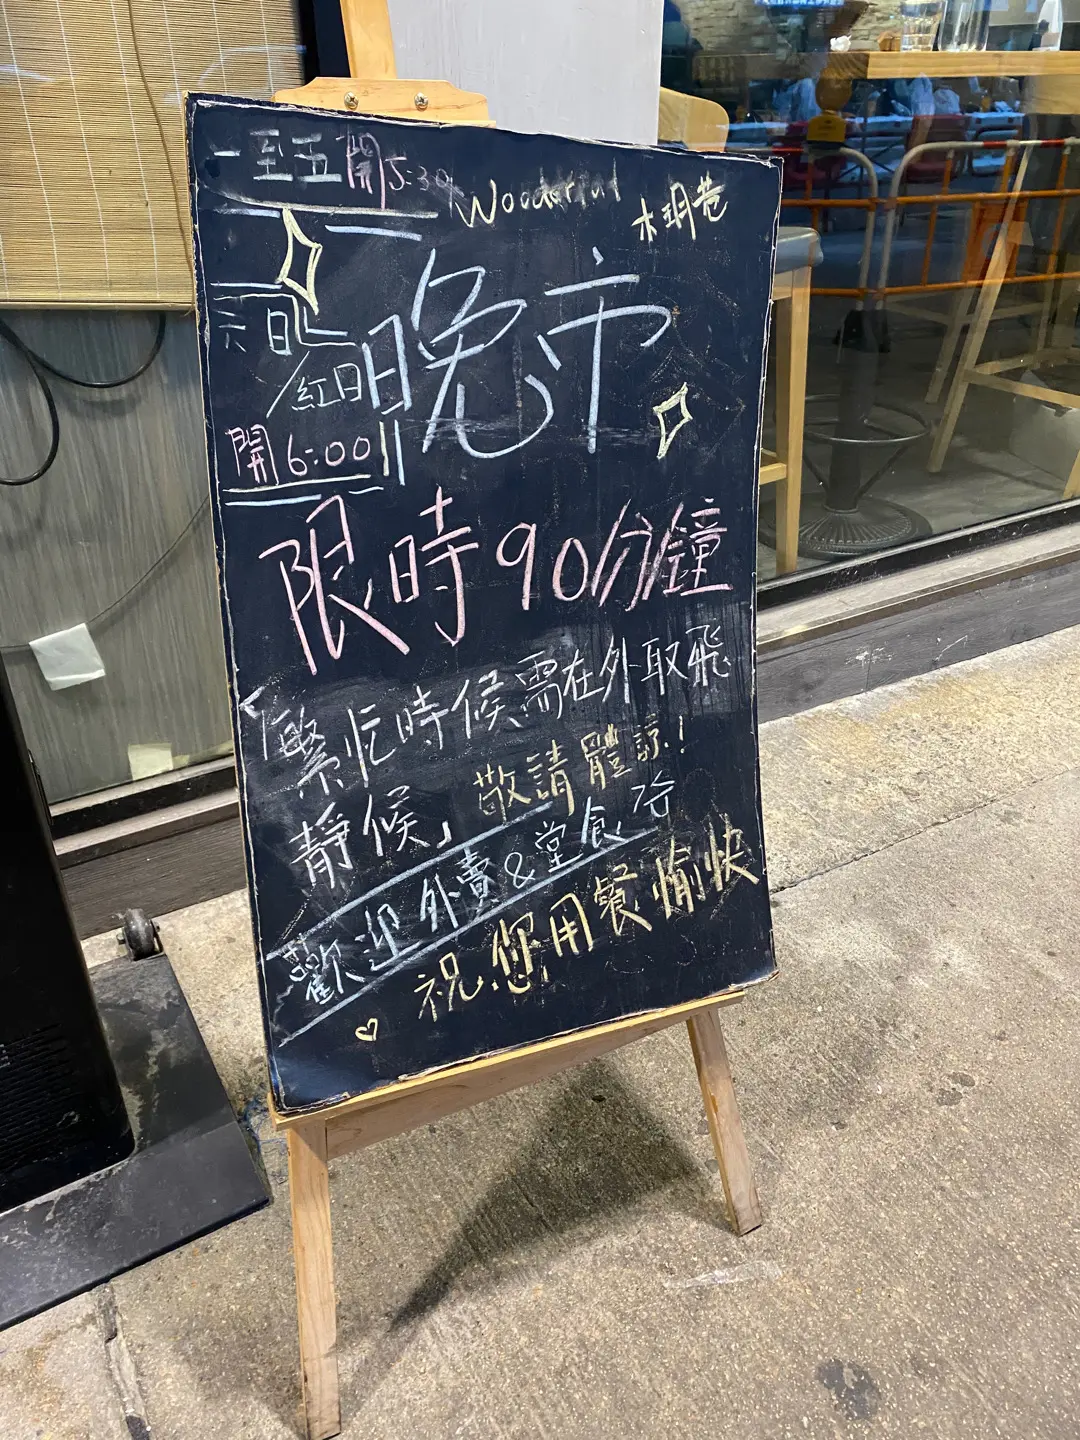 一至五開5:30
Wooderful
木玥巷
六日
/紅日
開6:00
晚市
限時90分鐘
「繁忙時候需在外取飛
靜候」
敬請體諒!
歡迎外賣&堂食
祝您用餐愉快